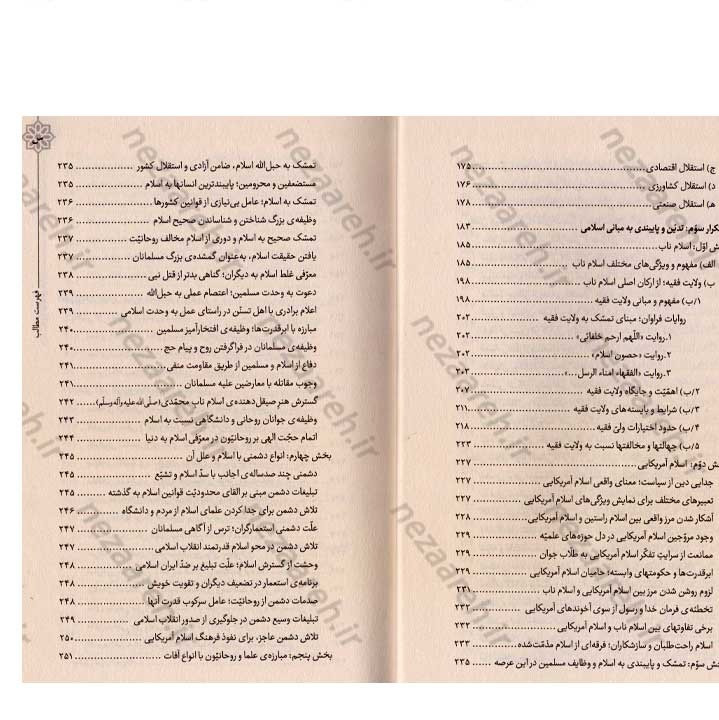 ج) استقلال اقتصادی ۱۷۵
د) استقلال کشاورزی ۱۷۶
هـ) استقلال صنعتی ۱۷۸
سوّم: تدیّن و پایبندی به مبانی اسلامی ۱۸۳
اوّل: اسلام ناب ۱۸۵
الف) مفهوم و ویژگی‌های مختلف اسلام ناب ۱۸۵
ب) ولایت فقیه؛ از ارکان اصلی اسلام ناب ۱۹۸
۱/ب) مفهوم و مبانی ولایت فقیه ۱۹۸
روایات فراوان؛ مبنای تمسّک به ولایت فقیه ۲۰۲
۱.روایت «اللّهم ارحم خلفائی» ۲۰۲
۲.روایت «حصون اسلام» ۲۰۲
۳.روایت «الفقهاء امناء الرسل...» ۲۰۳
۲/ب) اهمّیّت و جایگاه ولایت فقیه ۲۰۷
۳/ب) شرایط و بایسته‌های ولایت فقیه ۲۱۱
۴/ب) حدود اختیارات ولیّ فقیه ۲۱۸
۵/ب) جهالتها و مخالفتها نسبت به ولایت فقیه ۲۲۳
دوّم: اسلام آمریکایی ۲۲۷
جدایی دین از سیاست؛ معنای واقعی اسلام آمریکایی ۲۲۷
تعبیرهای مختلف برای نمایش ویژگی‌های اسلام آمریکایی ۲۲۷
آشکار شدن مرز واقعی بین اسلام راستین و اسلام آمریکایی ۲۲۸
وجود مروّجین اسلام آمریکایی در دل حوزه‌های علمیّه ۲۲۹
ممانعت از سرایتِ تفکّر اسلام آمریکایی به طلّاب جوان ۲۲۹
ابرقدرت‌ها و حکومتهای وابسته؛ حامیان اسلام آمریکایی ۲۲۹
لزوم روشن شدن مرز بین اسلام آمریکایی و اسلام ناب ۲۳۱
تخطئه‌ی فرمان خدا و رسول از سوی آخوندهای آمریکایی ۲۳۲
برخی تفاوتهای بین اسلام ناب و اسلام آمریکایی ۲۳۲
اسلام راحت‌طلبان و سازشکاران؛ فرقه‌ای از اسلام مذمّت‌شده ۲۳۳
سوّم: تمسّک و پایبندی به اسلام و وظایف مسلمین در این عرصه ۲۳۵
تمسّک به حبل‌الله اسلام، ضامن آزادی و استقلال کشور ۲۳۵
مستضعفین و محرومین؛ پایبندترین انسانها به اسلام ۲۳۵
تمسّک به اسلام؛ عامل بی‌نیازی از قوانین کشورها ۲۳۶
وظیفه‌ی بزرگ شناختن و شناساندن صحیح اسلام ۲۳۶
تمسّک صحیح به اسلام و دوری از اسلام مخالف روحانیّت ۲۳۷
یافتن حقیقت اسلام، به‌عنوان گمشده‌ی بزرگ مسلمانان ۲۳۷
معرّفی غلط اسلام به دیگران؛ گناهی بدتر از قتل نبی ۲۳۸
دعوت به وحدت مسلمین؛ اعتصام عملی به حبل‌الله ۲۳۹
اعلام برادری با اهل تسنّن در راستای عمل به وحدت اسلامی ۲۳۹
مبارزه با ابرقدرت‌ها؛ وظیفه‌ی افتخارآمیز مسلمین ۲۴۰
وظیفه‌ی مسلمانان در فراگرفتن روح و پیام حج ۲۴۰
دفاع از اسلام و مسلمین از طریق مقاومت منفی ۲۴۱
وجوب مقاتله با معارضین علیه مسلمانان ۲۴۱
گسترش هنر صیقل‌دهنده‌ی اسلام ناب محمّدی (صلّی‌الله‌علیه‌وآله‌وسلّم) ۲۴۲
وظیفه‌ی جوانان روحانی و دانشگاهی نسبت به اسلام ۲۴۳
اتمام حجّت الهی بر روحانیّون در معرّفی اسلام به دنیا ۲۴۴
بخش چهارم: انواع دشمنی با اسلام و علل آن ۲۴۵
دشمنی چند صدساله‌ی اجانب با سدّ اسلام و تشیّع ۲۴۵
تبلیغات دشمن مبنی بر القای محدودیّت قوانین اسلام به گذشته ۲۴۵
تلاش دشمن برای جدا کردن علمای اسلام از مردم و دانشگاه ۲۴۶
علّت دشمنی استعمارگران؛ ترس از آگاهی مسلمانان ۲۴۷
تلاش دشمن در محو اسلام قدرتمند انقلاب اسلامی ۲۴۷
وحشت از گسترش اسلام؛ علّت تبلیغ بر ضدّ ایران اسلامی ۲۴۸
برنامه‌ی استعمار در تضعیف دیگران و تقویت خویش ۲۴۸
صدمات دشمن از روحانیّت؛ عامل سرکوب قدرت آنها ۲۴۸
تبلیغات وسیع دشمن در جلوگیری از صدور انقلاب اسلامی ۲۴۹
تلاش دشمن عاجز، برای نفوذ فرهنگ اسلام آمریکایی ۲۵۰
بخش پنجم: مبارزه‌ی علما و روحانیّون با انواع آفات ۲۵۱
فهرست مطالب
nezaareh.ir
nezaareh.ir
nezaareh.ir
nezaareh.ir
nezaareh.ir
nezaareh.ir
nezaareh.ir